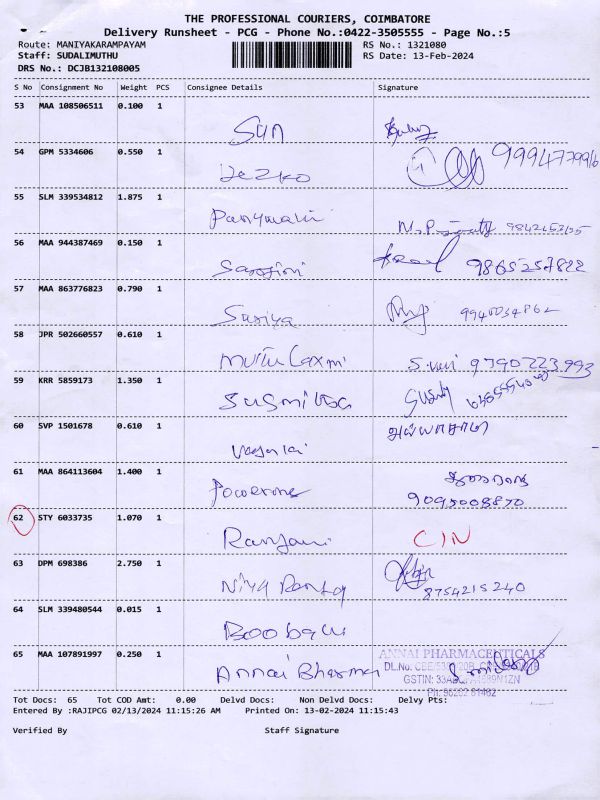 THE PROFESSIONAL COURIERS, COIMBATORE
Delivery Runsheet - PCG - Phone No.:0422-3505555 - Page No.:5
Route: MANIYAKARAMPAYAM RS No.: 1321080
Staff: SUDALIMUTHU RS Date: 13-Feb-2024
DRS No.: DCJB132108005
S No Consignment No Weight PCS Consignee Details Signature
53 MAA 108506511 0.100 1
Sun
54 GPM 5334606 0.550 1
Jezko
55 SLM 339534812 1.875 1
56 MAA 944387469 0.150 1
9865257822
57 MAA 863776823 0.790 1
Suriya
58 JPR 502660557 0.610 1
Muthu Laxmi 9790223993
59 KRR 5859173 1.350 1
Susmitha
60 SVP 1501678 0.610 1
61 MAA 864113604 1.400 1
Powerone 9095008870
62 STY 6033735 1.070 1
Ranjani CIN
63 DPM 698386 2.750 1
8754215240
64 SLM 339480544 0.015 1
65 MAA 107891997 0.250 1
Annai Bharma
ANNAI PHARMACEUTICALS
Tot Docs: 65 Tot COD Amt: 0.00 Delvd Docs: Non Delvd Docs: Delvy Pts:
Entered By :RAJIPCG 02/13/2024 11:15:26 AM Printed On: 13-02-2024 11:15:43
Verified By Staff Signature